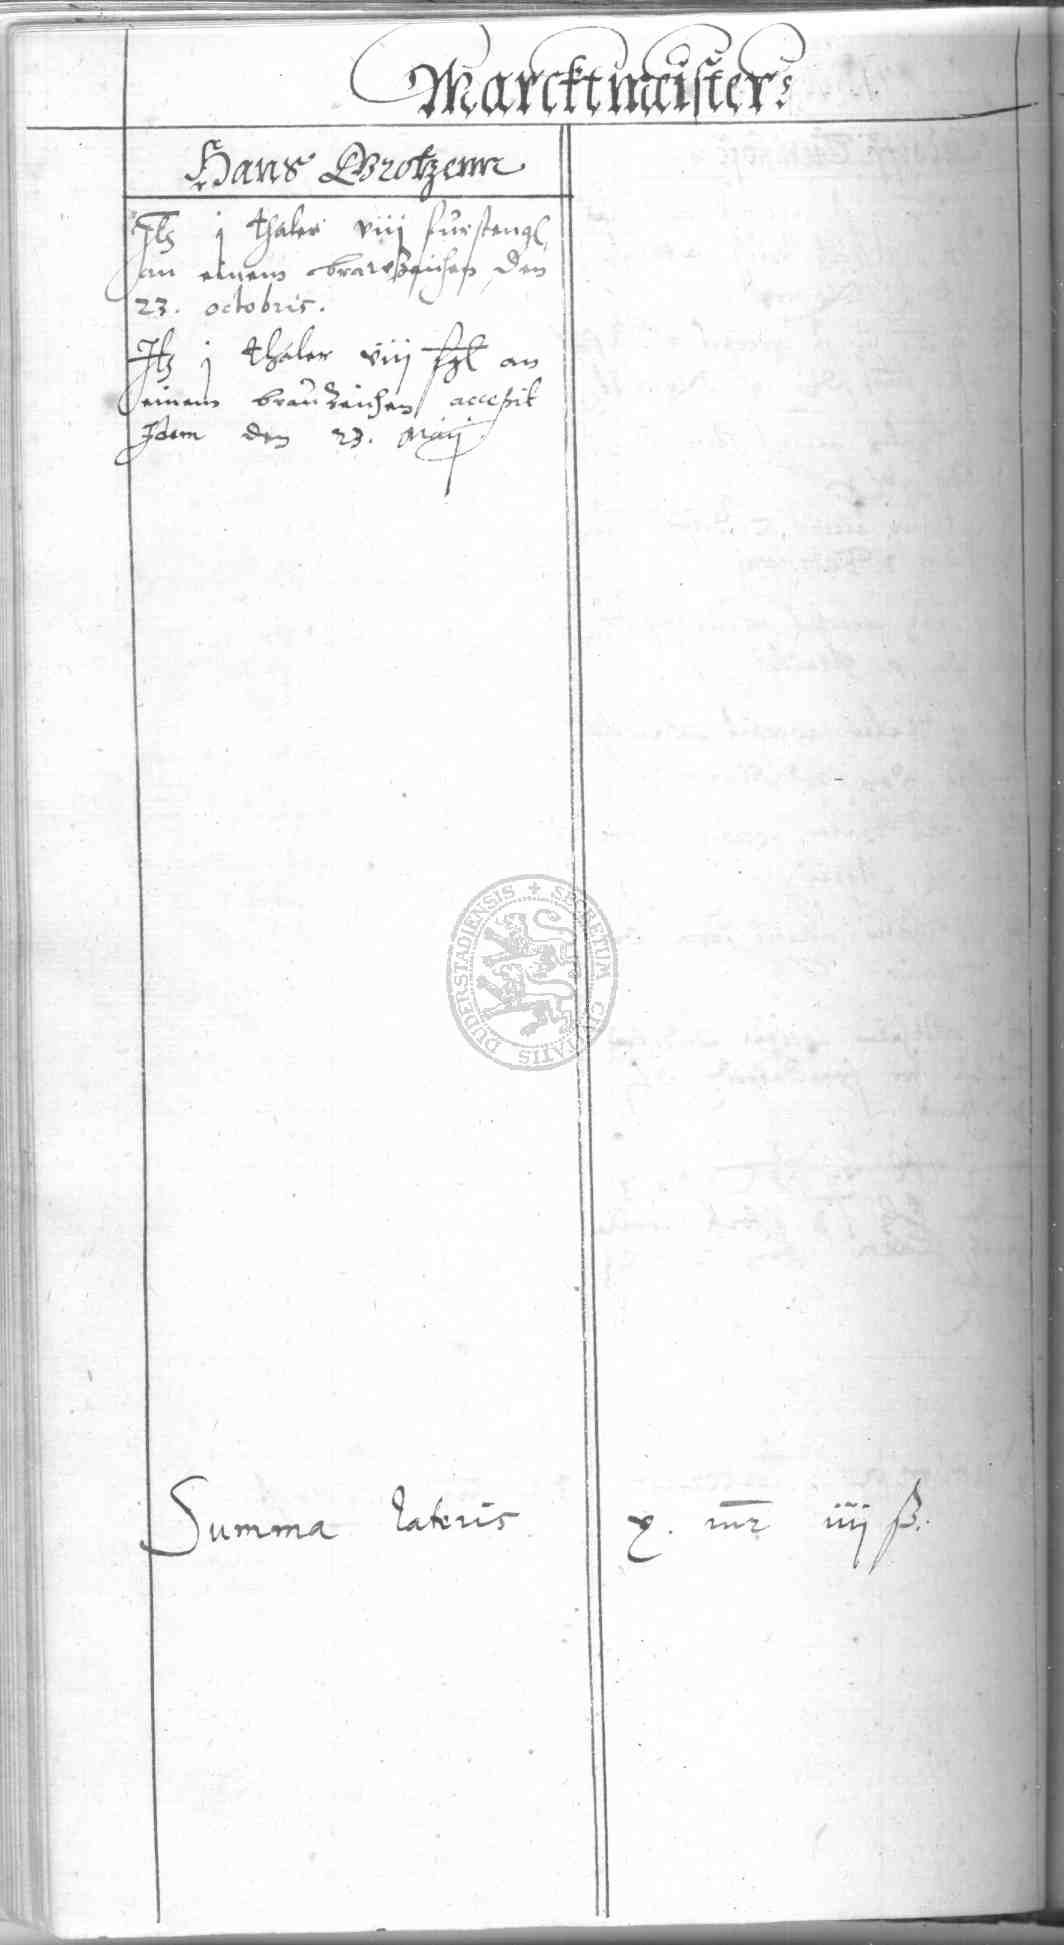 Marcktmeister:
Hans Grotzenn
Itz j thaler viij furstengl
an einem brawzeichen den
23. octobris.
Itz j thaler viij fgl an
einem brauzeichen accepit
Idem den 23. Maij
SECRETUM CIVITATIS DUDERSTADIENSIS
Summa lateris x. mr iiij ß.